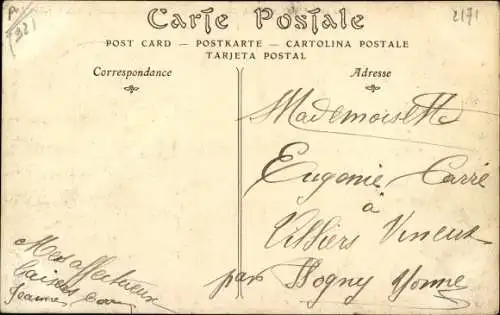 921
2171
Carte Postale
POST CARD — POSTKARTE — CARTOLINA POSTALE
TARJETA POSTAL
Correspondance
Adresse
Mademoiselle
Eugenie Carré
à
Villiers Vineux
par Flogny Yonne
Mes affectueux
baisers
Jeanne